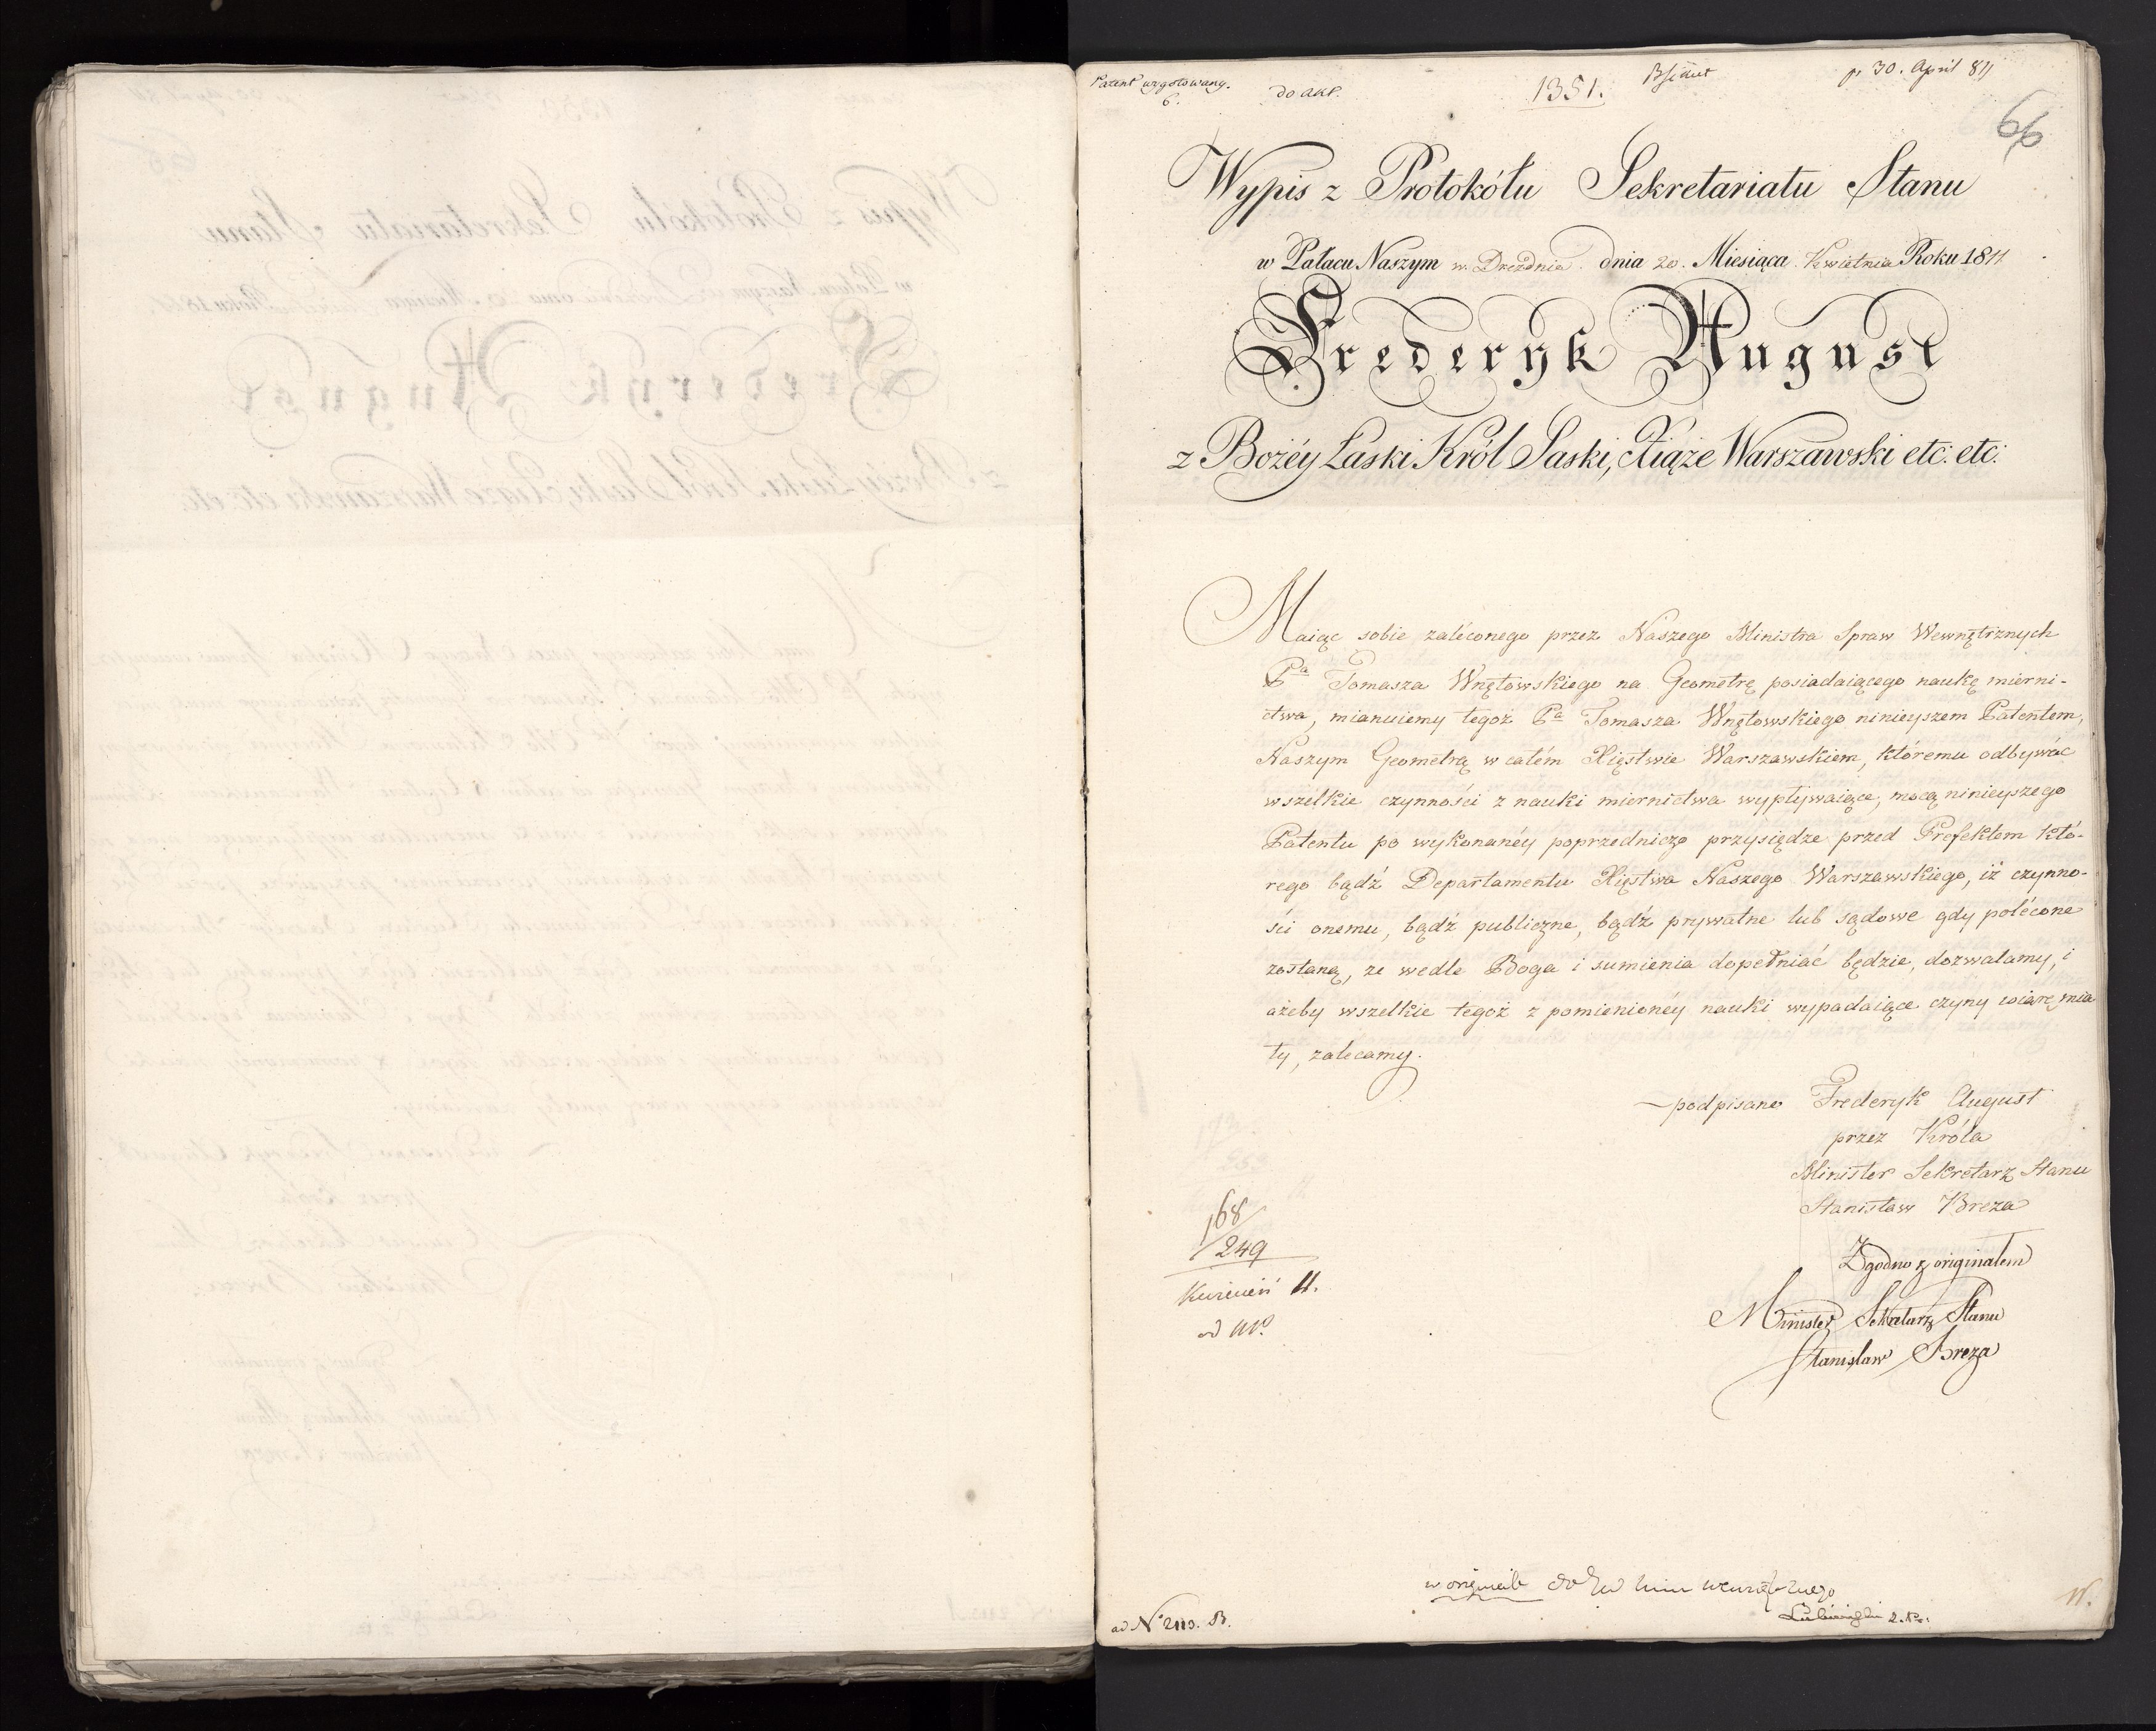 Patent wygotowany.
6.
do akt.
1351.
pr 30. April 811
66
Wypis z Protokółu Sekretariatu Stanu
w Pałacu Naszym w Dreźdnie dnia 20. Miesiąca Kwietnia Roku 1811
Frederyk August
z Bożéy Łaski Król Saski, Xiąże Warszawski etc: etc:
Maiąc sobie zaléconego przez Naszego Ministra Spraw Wewnętrznych
Pa Tomasza Wnętowskiego na Geometrę posiadaiącego naukę mierni-
ctwa, mianuiemy tegoż Pa Tomasza Wnętowskiego ninieyszem Patentem,
Naszym Geometrą w całém Xięstwie Warszawskiem, któremu odbywać
wszelkie czynności z nauki miernictwa wypływaiące, mocą ninieyszego
Patentu po wykonanéy poprzedniczo przysiędze przed Prefektem któ-
rego bądź Departamentu Xięstwa Naszego Warszawskiego, iż czynno-
ści onemu, bądź publiczne, bądź prywatne lub sądowe gdy polécone
zostaną, że wedle Boga i sumienia dopełniać będzie, dozwalamy, i
ażeby wszelkie tegoż z pomienionéy nauki wypadaiące czyny wiarę mia
ły, zalecamy.
podpisano Frederyk August
przez Króla
Minister Sekretarz Stanu
Stanisław Breza
168
249
Kwiecień 11.
Zgodno z originałem
Minister Sekretarz Stanu
Stanisław Breza
w originale
ad No 2113. B.